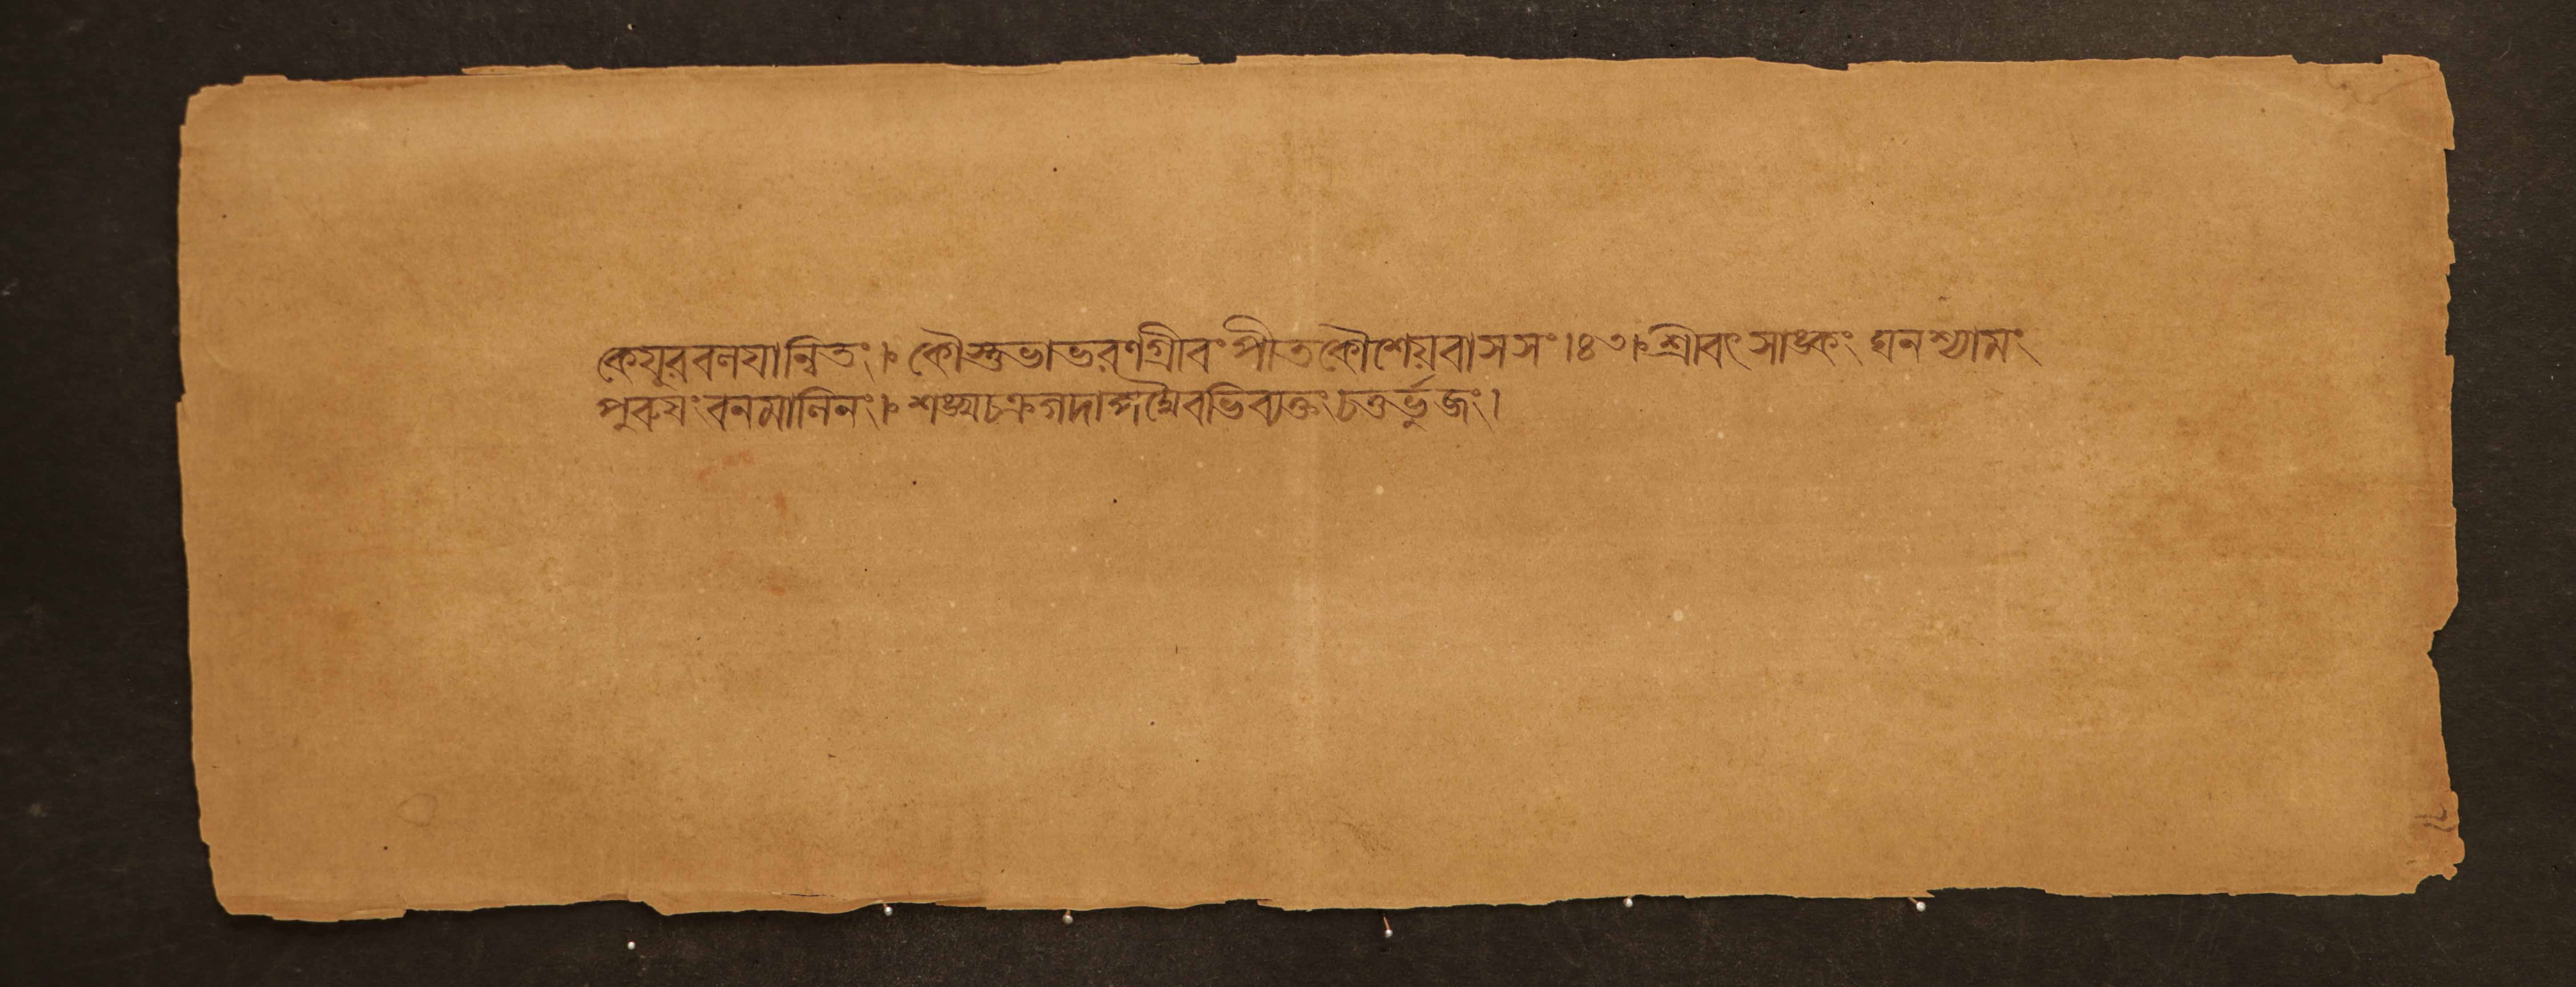 কেযূরবলযান্বিতং। কৌস্তুভাভরণগ্রীবং পীতকৌশেয়বাসসং।৪৭। শ্রীবৎসাঙ্কং ঘনশ্যামং
পুরুষং বনমালিনং। শঙ্খচক্রগদাপদ্মৈরভিব্যক্তং চতুর্ভুজং।